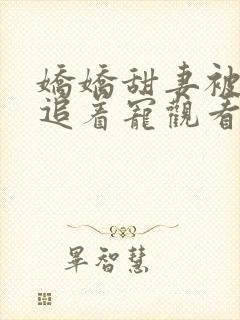 嬌嬌甜妻被
追着寵觀看
畢智慧